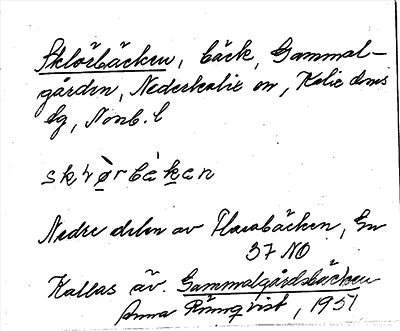 Sklörbäcken, bäck, Gammal-
gården, Nederkalix sn, Kalix doms
lg, Nonb. l
skḷø̀rbɛ́kan
Nedre delen av Flarabäcken, En
37 NO
Kallas äv. Gammalgårdsbäcken
Anna Rönnqvist, 1951